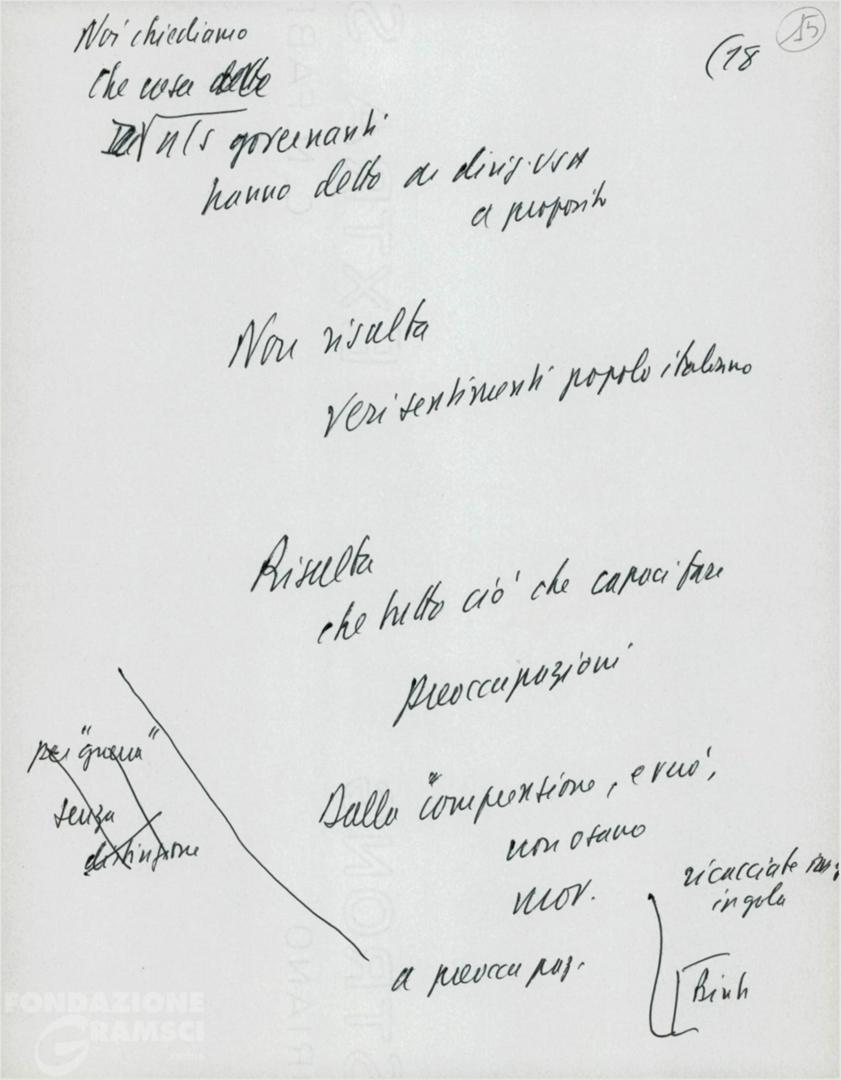 15
(18
Noi chiediamo
che cosa
n/s governanti
hanno detto a dirig. USA
a proposito
Non risulta
veri sentimenti popolo italiano
Risulta
che tutto ciò che capaci fare
preoccupazioni
per "guerra"
senza
distinzione
Dalla "comprensione,
non osano
mov.
ricacciate
in gola
a preoccupaz.
FONDAZIONE
GRAMSCI